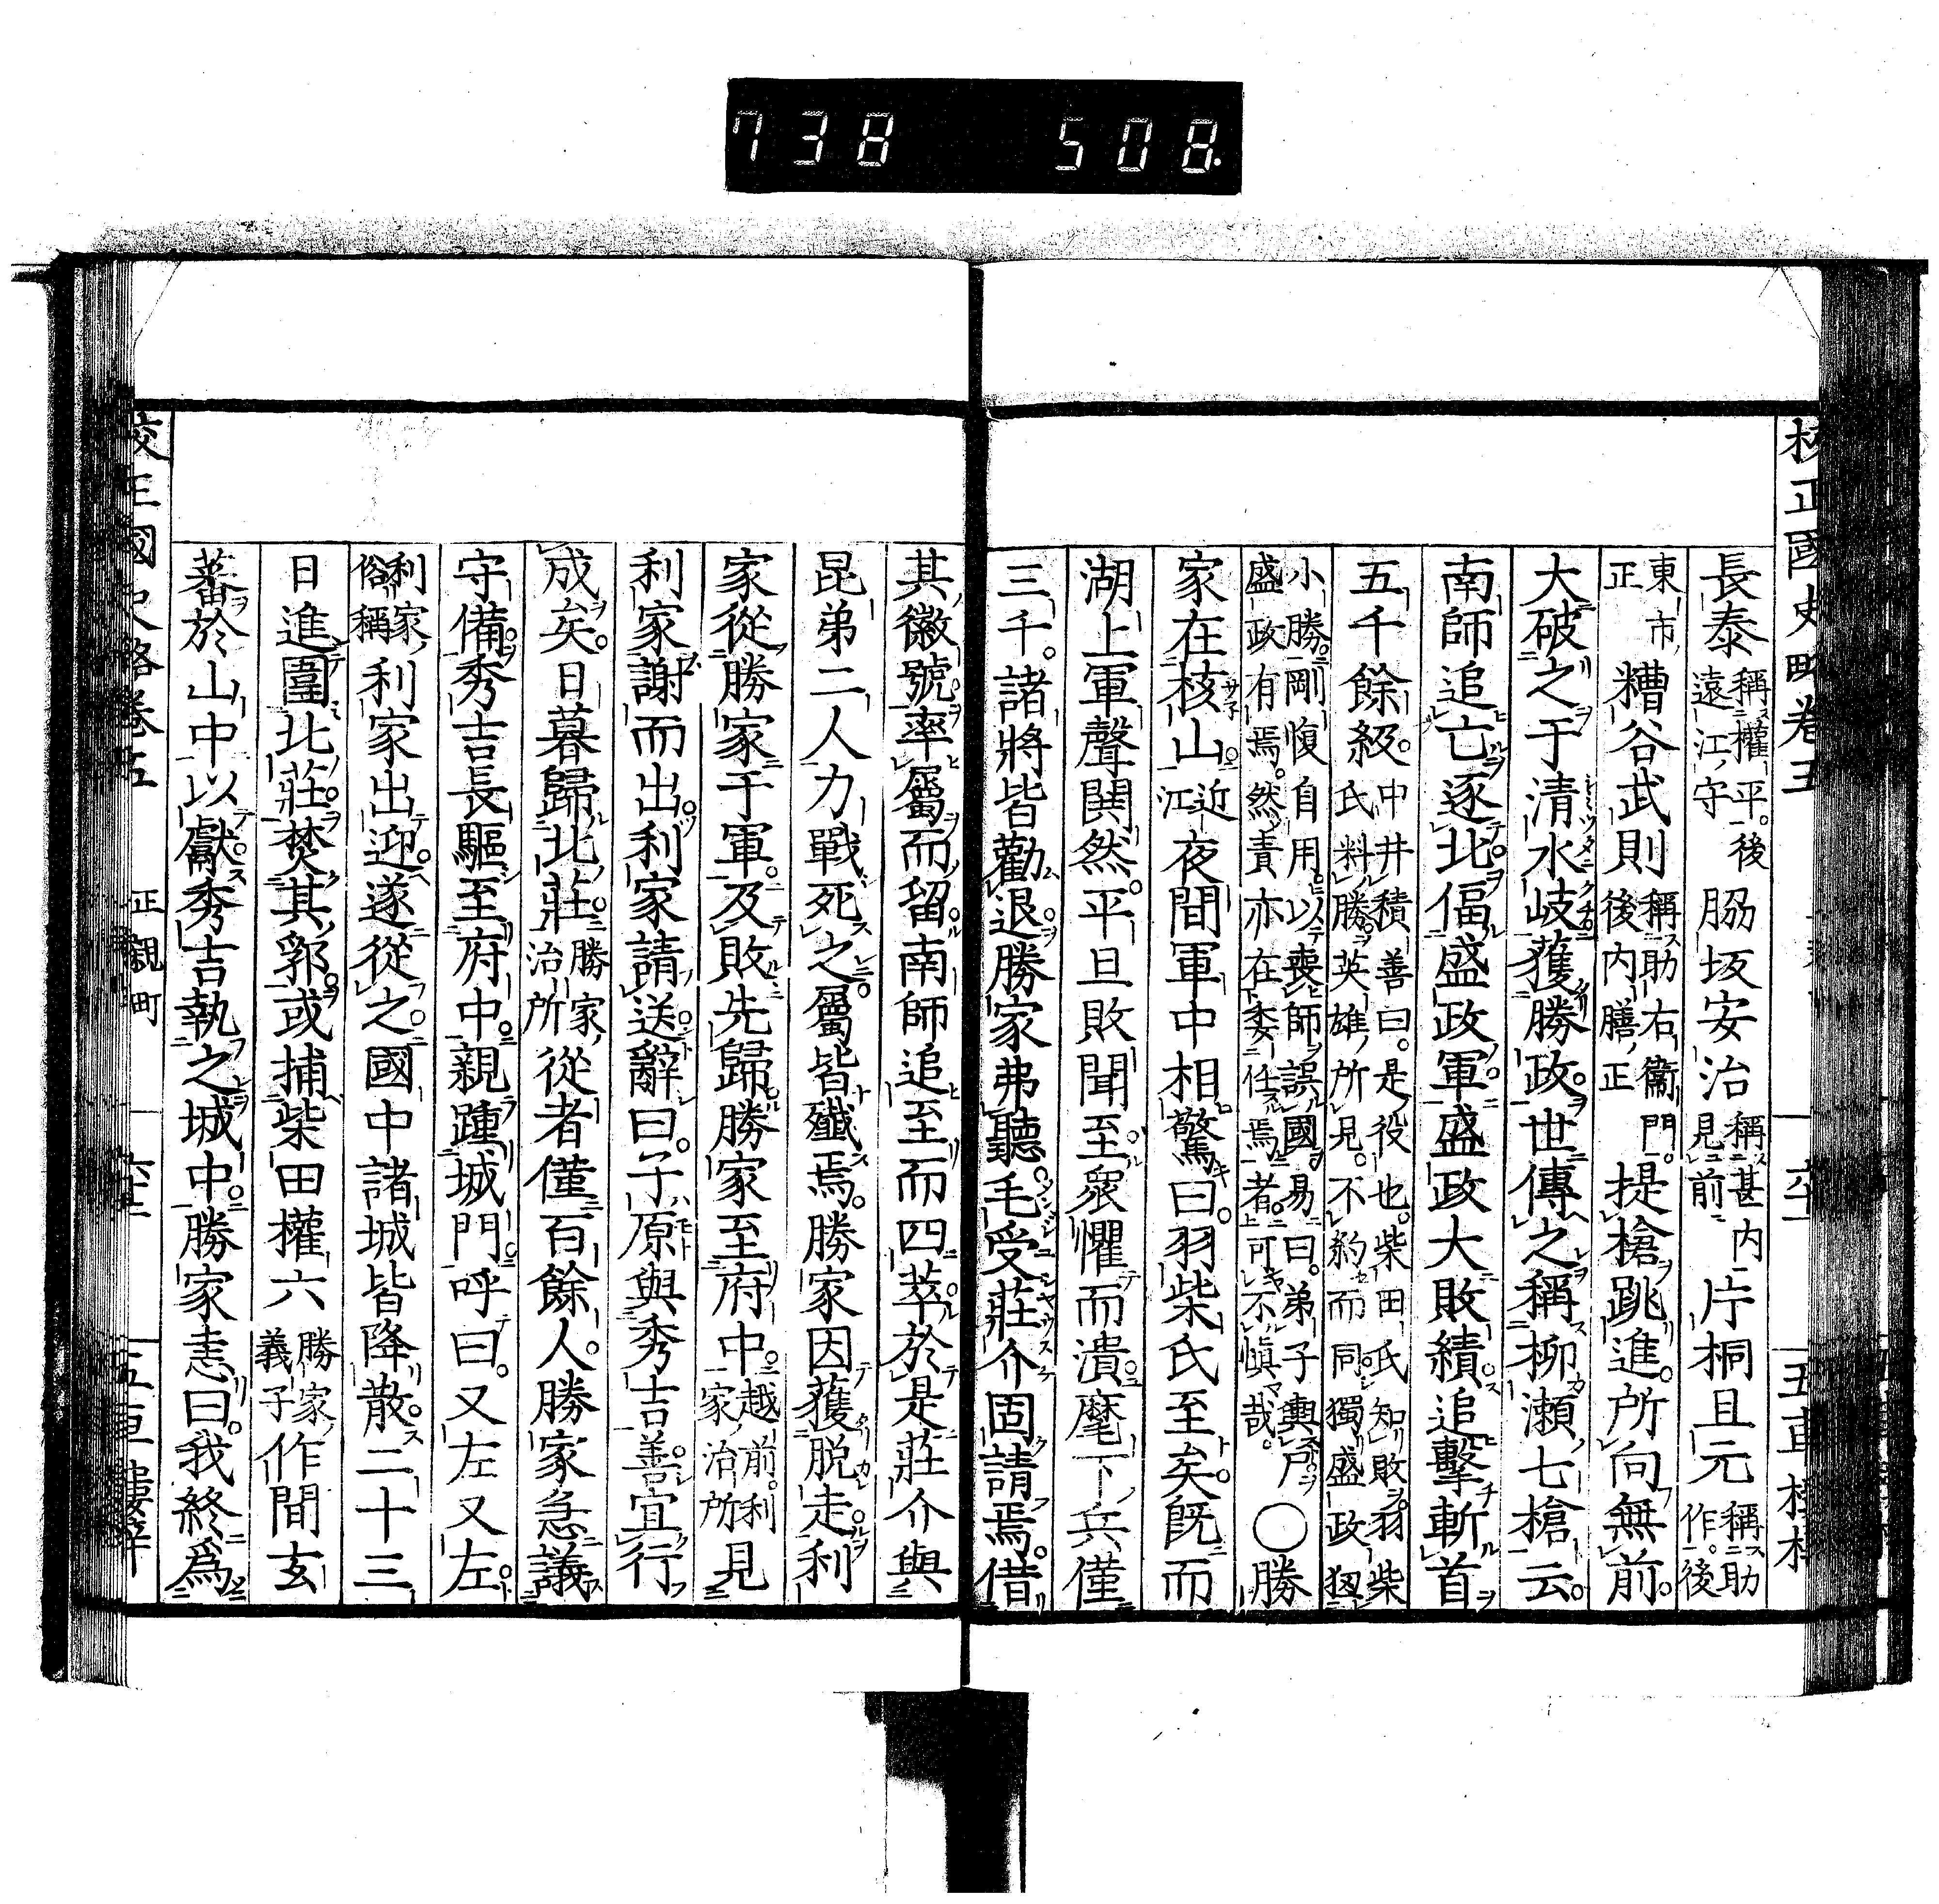 738 508.
校正國史略卷五
長泰稱權平後遠江守脇坂安治稱甚内見前片桐且元稱助作後
東市正糟谷武則稱助右衞門後内膳正提槍跳進所向無前
大破之于清水岐獲勝政世傳之稱柳瀬七槍云
南師追亡逐北偪盛政軍盛政大敗績追擊斬首
五千餘級中井積善曰是役也柴田氏知敗羽柴氏料勝英雄所見不約而同獨盛政狃
小勝剛愎自用以喪師誤國易曰弟子輿尸盛政有焉然責亦在委任焉者可不愼哉○勝
家在核山近江夜間軍中相驚曰羽柴氏至矣既而
湖上軍聲鬨然平旦敗聞至衆懼而潰麾下兵僅
三千諸將皆勸退勝家弗聽毛受莊介固請焉借
其徽號率屬而留南師追至而四萃於是莊介與
昆弟二人力戰死之屬皆殲焉勝家因獲脱走利
家從勝家于軍及敗先歸勝家至府中越前利家治所見
利家謝而出利家請送辭曰子原與秀吉善宜行
成矣日暮歸北莊勝家治所從者僅百餘人勝家急議
守備秀吉長驅至府中親踵城門呼曰又左又左
利家俗稱利家出迎遂從之國中諸城皆降散二十三
日進圍北莊焚其郛或捕柴田權六勝家義子作間玄
蕃於山中以獻秀吉執之城中勝家恚曰我終爲
校正國史略卷五 正親町